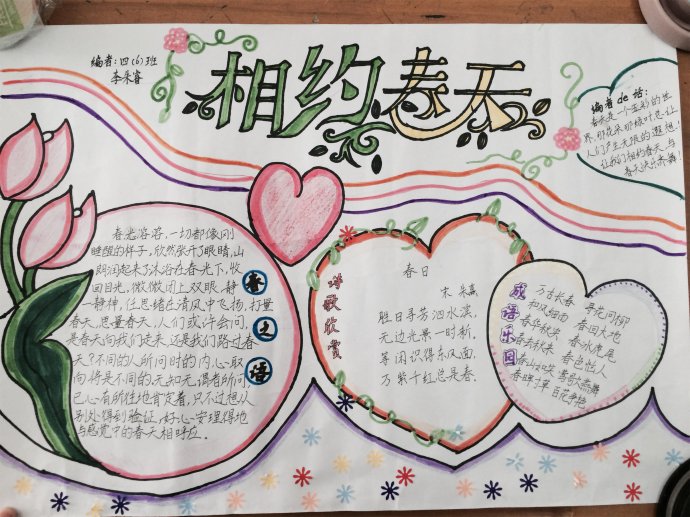 编者:四(6)班
李朱睿
相约春天
编者de话:
春天是一个五彩的世
界,那花朵那绿叶总让
人们产生无限的遐想!
让我们相约春天,与
春天快乐奔舞
春光溶溶,一切都像刚
睡醒的样子,欣然张开了眼睛,山
朗润起来了。沐浴在春光下,收
回目光,微微闭上双眼,静
一静神,任思绪在清风中飞扬,打量
春天,思量春天,人们或许会问,
是春天向我们走来,还是我们路过春
天?不同的人所问时的内心取
向将是不同的,无知无
已心有所性地肯定着,只不过想从
别处得到验证,好心安理得地
与感觉中的春天相呼应。
春之语
诗歌欣赏
春日
宋 朱熹
胜日寻芳泗水滨,
无边光景一时新。
等闲识得东风面,
万紫千红总是春。
成语乐园
万古长春 寻花问柳
和风细雨 春回大地
春华秋实 春冰虎尾
春去秋来 春色恼人
莺歌燕舞
百花争艳